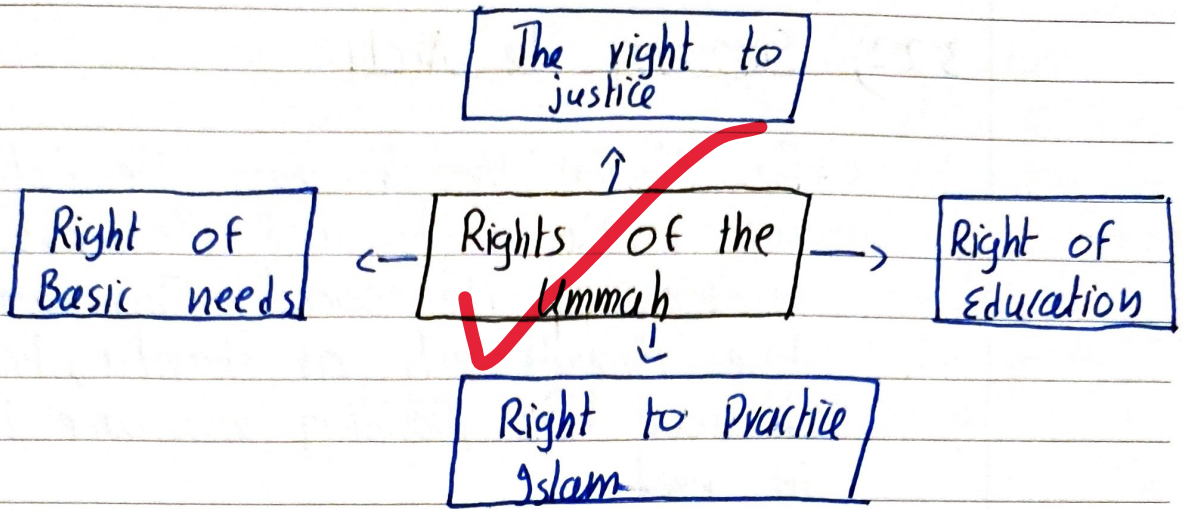 The right to
justice
Right of
Basic needs
Rights of the
Ummah
Right of
Education
Right to Practice
Islam